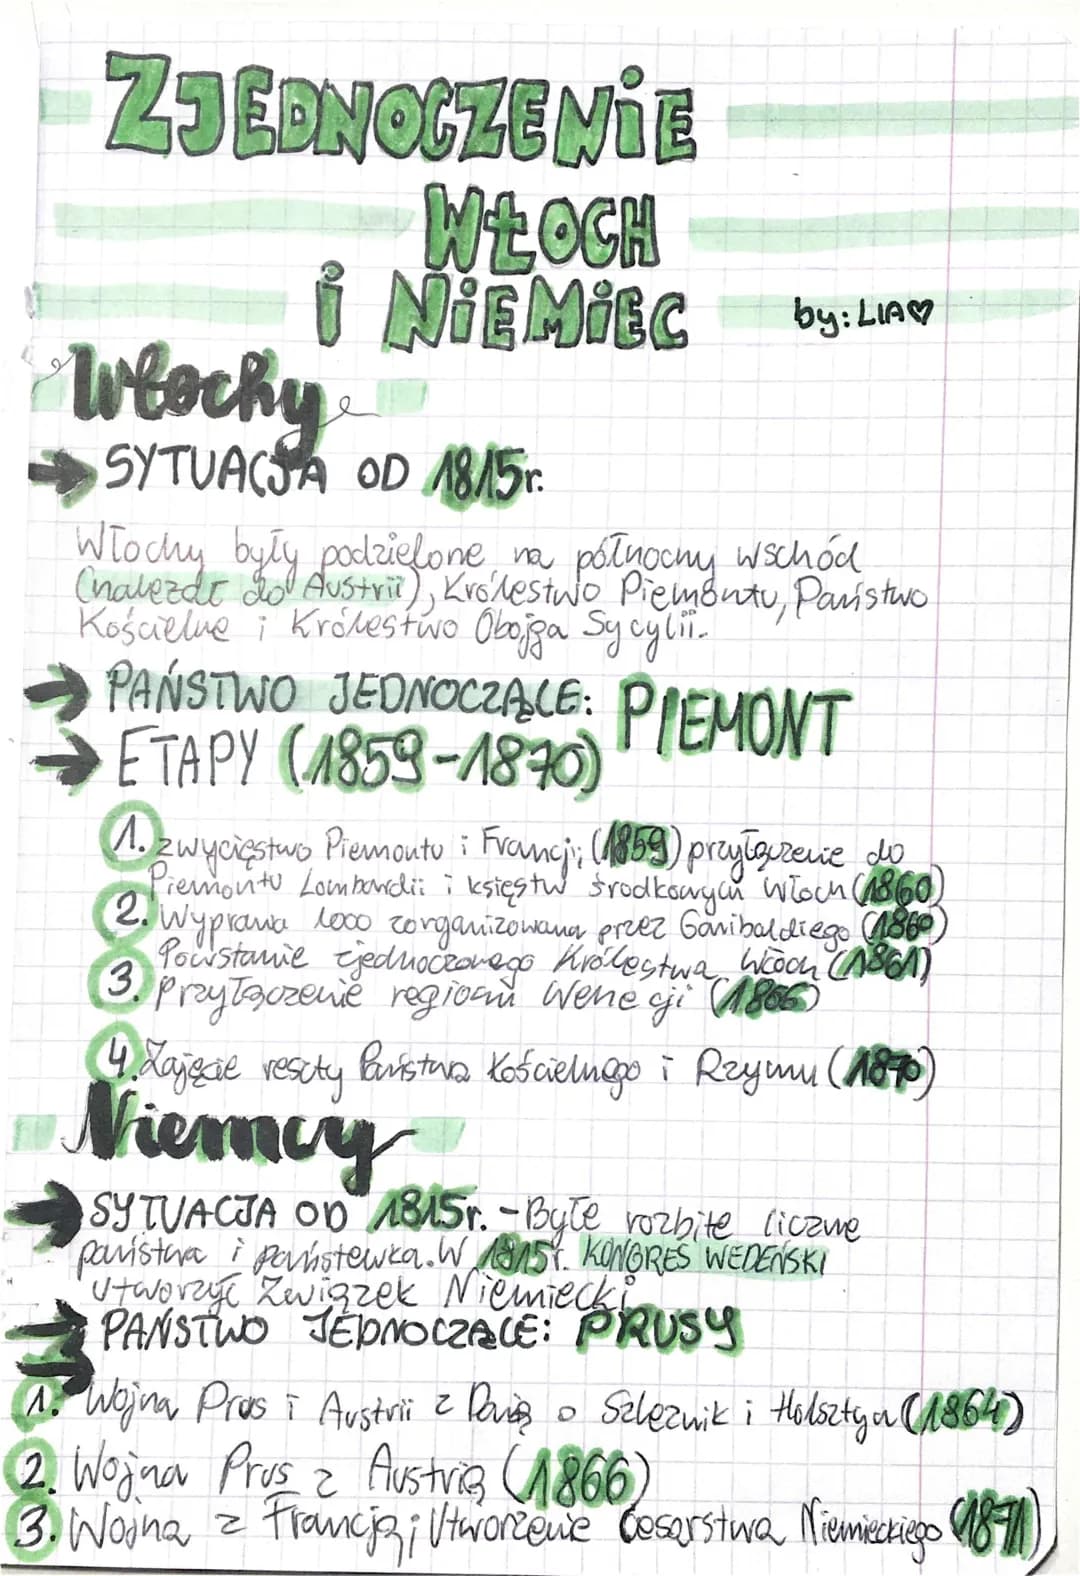 ZJEDNOCZENIE
WŁOCH
i NIEMIEC
by: LIA♡
Włochy
→ SYTUACJA OD 1815r.
Włochy były podzielone na północny wschód
(należał do Austrii), Królestwo Piemontu, Państwo
Kościelne i Królestwo Obojga Sycylii.
→ PAŃSTWO JEDNOCZĄCE: PIEMONT
→ ETAPY (1859-1870)
1. zwycięstwo Piemontu i Francji; (1859) przyłączenie do
Piemontu Lombardii i księstw środkowych Włoch (1860)
2. Wyprawa 1000 zorganizowana przez Garibaldiego (1860)
Powstanie zjednoczonego Królestwa Włoch (1861)
3. Przyłączenie regionu Wenecji (1866)
4. Zajęcie reszty Państwa Kościelnego i Rzymu (1870)
Niemcy
→ SYTUACJA OD 1815r. - Były rozbite liczne
państwa i państewka. W 1815r. KONGRES WEDEŃSKI
utworzył Związek Niemiecki
→ PAŃSTWO JEDNOCZĄCE: PRUSY
1. Wojna Prus i Austrii z Danią o Szlezwik i Holsztyn (1864)
2. Wojna Prus z Austrią (1866)
3. Wojna z Francją; Utworzenie Cesarstwa Niemieckiego (1871)